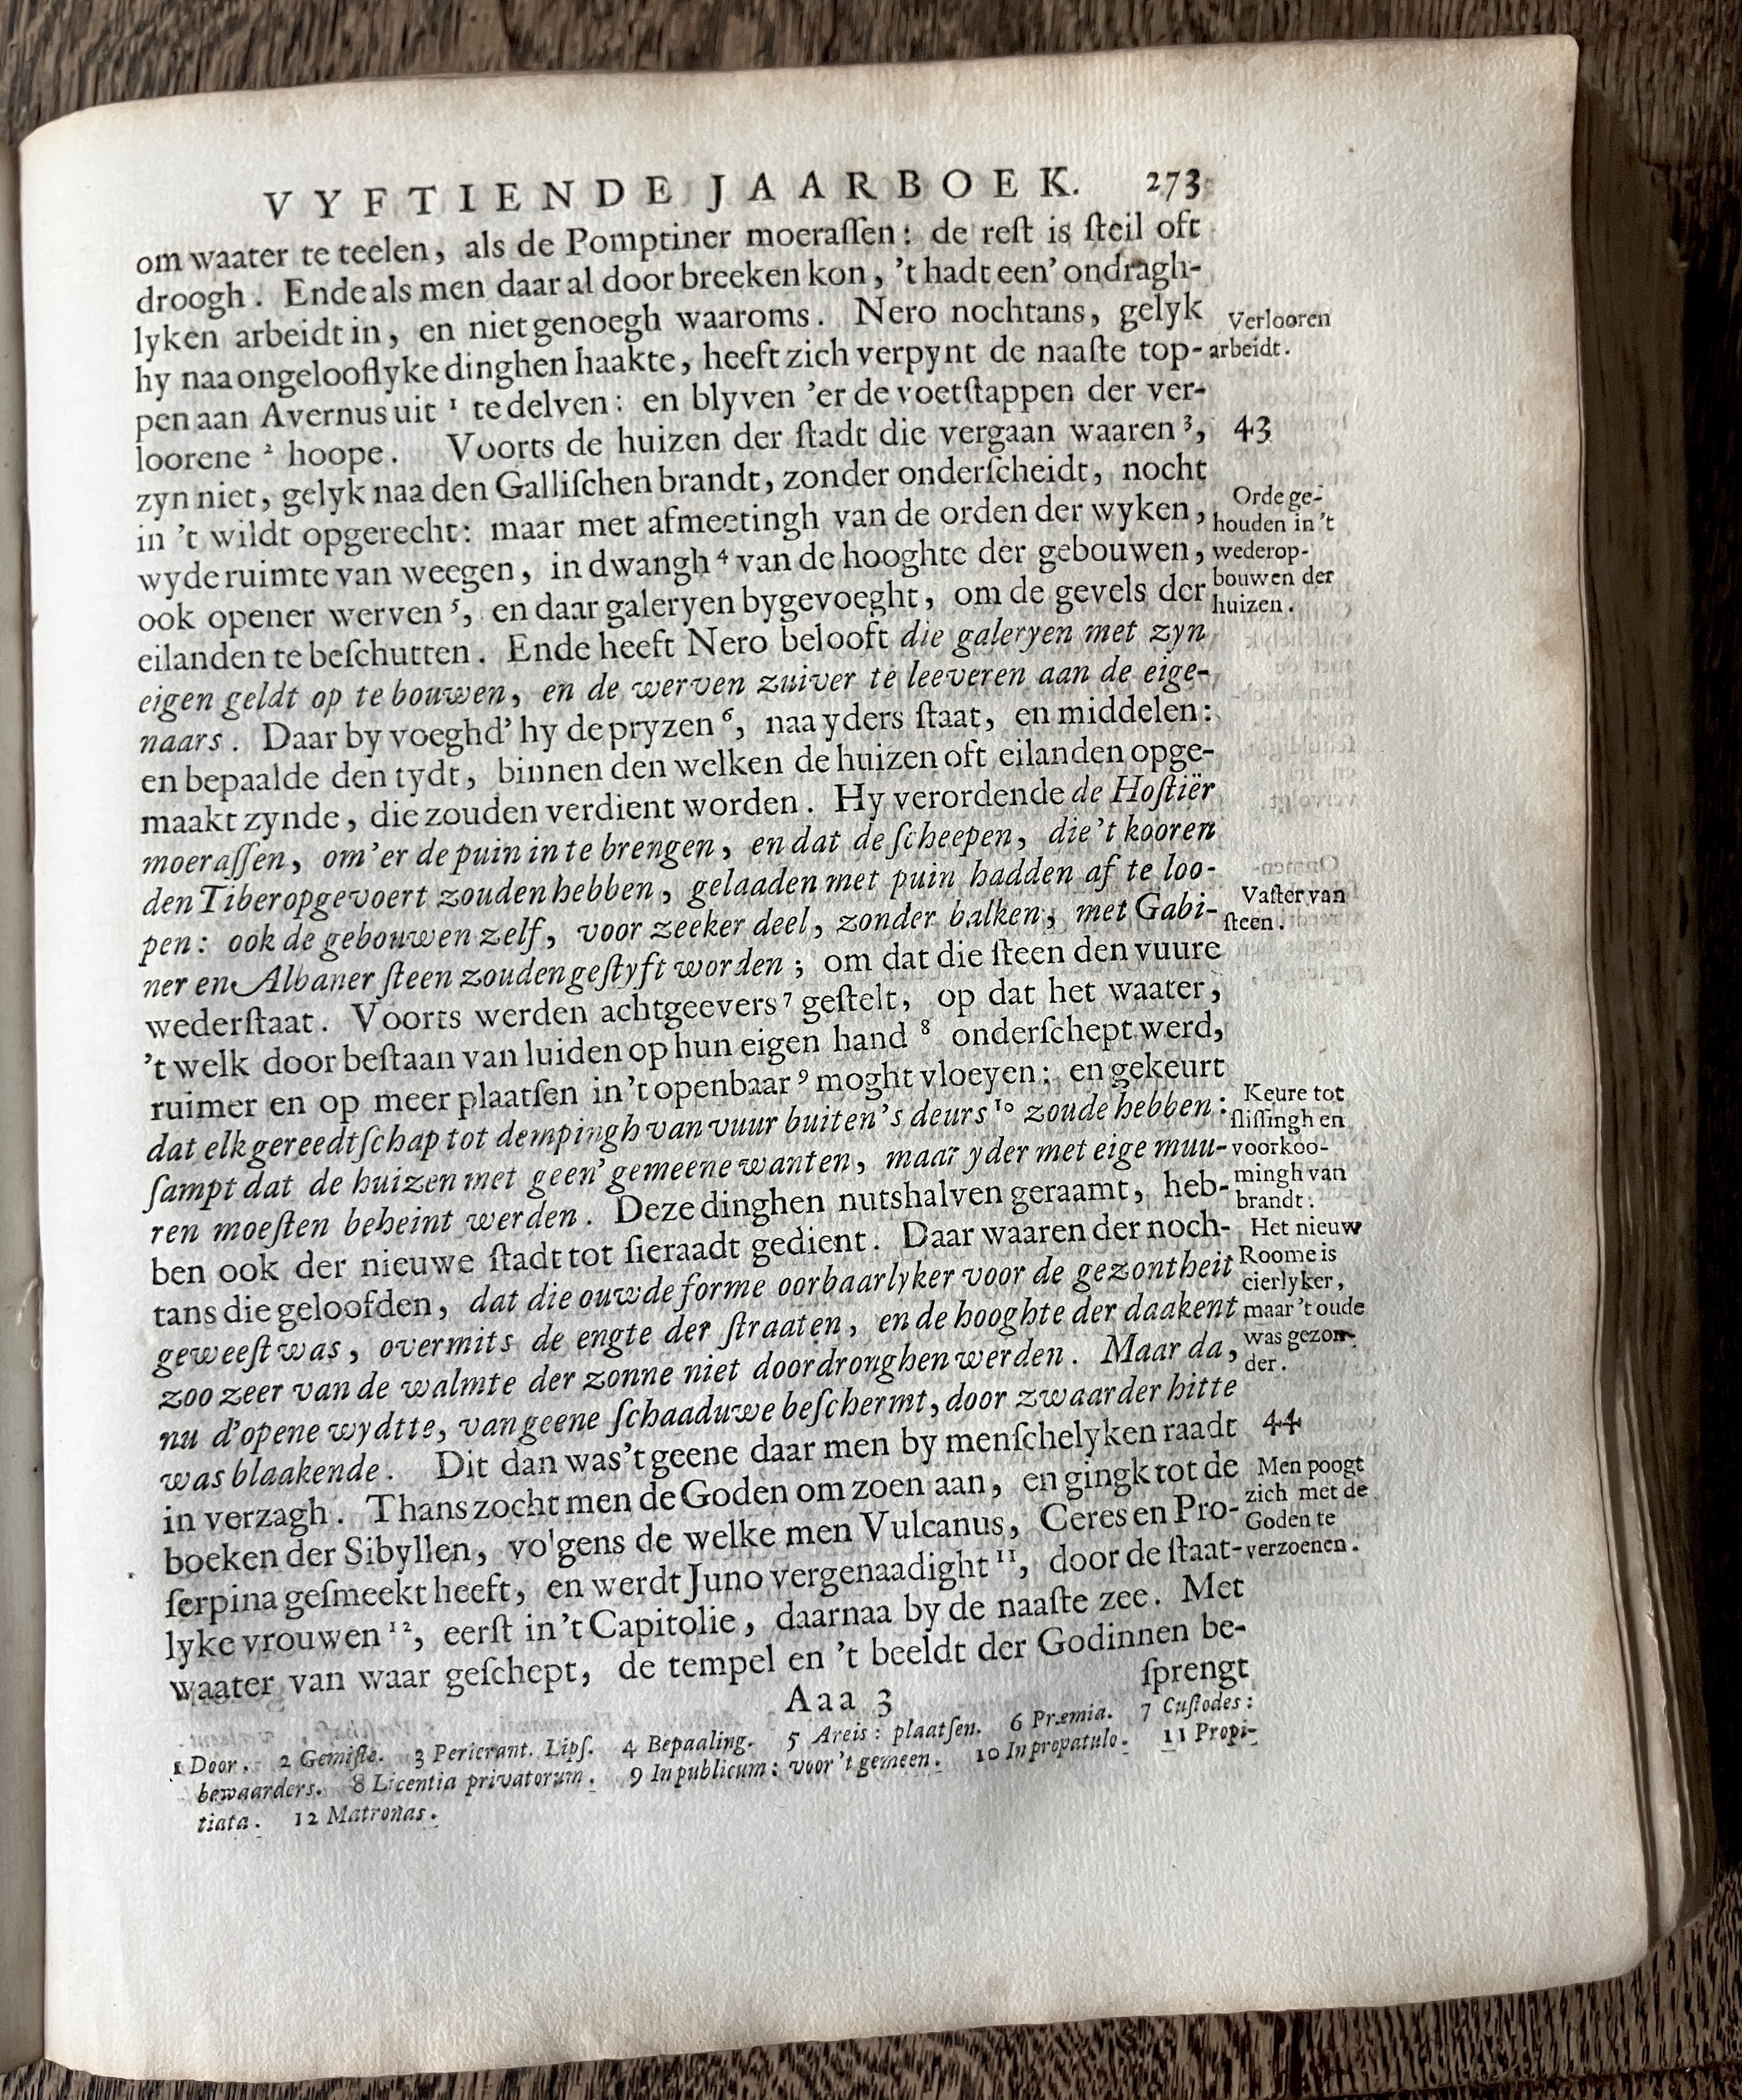 VYFTIENDE JAARBOEK. 273
om waater te teelen, als de Pomptiner moeraſſen: de reſt is ſteil oft
droogh. Ende als men daar al door breeken kon, 't hadt een' ondragh-
lyken arbeidt in, en niet genoegh waaroms. Nero nochtans, gelyk
hy naa ongelooflyke dinghen haakte, heeft zich verpynt de naaſte top-
pen aan Avernus uit 1 te delven: en blyven 'er de voetſtappen der ver-
loorene 2 hoope. Voorts de huizen der ſtadt die vergaan waaren 3,
zyn niet, gelyk naa den Galliſchen brandt, zonder onderſcheidt, nocht
in 't wildt opgerecht: maar met afmeetingh van de orden der wyken,
wyde ruimte van weegen, in dwangh 4 van de hooghte der gebouwen,
ook opener werven 5, en daar galeryen bygevoeght, om de gevels der
eilanden te beſchutten. Ende heeft Nero belooft die galeryen met zyn
eigen geldt op te bouwen, en de werven zuiver te leeveren aan de eige-
naars. Daar by voeghd' hy de pryzen 6, naa yders ſtaat, en middelen:
en bepaalde den tydt, binnen den welken de huizen oft eilanden opge-
maakt zynde, die zouden verdient worden. Hy verordende de Hoſtiër
moeraſſen, om 'er de puin in te brengen, en dat de ſcheepen, die 't kooren
den Tiber opgevoert zouden hebben, gelaaden met puin hadden af te loo-
pen: ook de gebouwen zelf, voor zeeker deel, zonder balken, met Gabi-
ner en Albaner ſteen zouden geſtyft worden; om dat die ſteen den vuure
wederſtaat. Voorts werden achtgeevers 7 geſtelt, op dat het waater,
't welk door beſtaan van luiden op hun eigen hand 8 onderſchept werd,
ruimer en op meer plaatſen in 't openbaar 9 moght vloeyen: en gekeurt
dat elk gereedtſchap tot dempingh van vuur buiten 's deurs 10 zoude hebben:
ſampt dat de huizen met geen' gemeene wanten, maar yder met eige muu-
ren moeſten beheint werden. Deze dinghen nutshalven geraamt, heb-
ben ook der nieuwe ſtadt tot ſieraadt gedient. Daar waaren der noch-
tans die geloofden, dat die ouwde forme oorbaarlyker voor de gezontheit
geweeſt was, overmits de engte der ſtraaten, en de hooghte der daaken
zoo zeer van de walmte der zonne niet doordronghen werden. Maar dat,
nu d'opene wydtte, van geene ſchaaduwe beſchermt, door zwaarder hitte
was blaakende. Dit dan was 't geene daar men by menſchelyken raadt
in verzagh. Thans zocht men de Goden om zoen aan, en gingk tot de
boeken der Sibyllen, volgens de welke men Vulcanus, Ceres en Pro-
ſerpina geſmeekt heeft, en werdt Juno vergenaadight 11, door de ſtaat-
lyke vrouwen 12, eerſt in 't Capitolie, daarnaa by de naaſte zee. Met
waater van waar geſchept, de tempel en 't beeldt der Godinnen be-
ſprengt
Verlooren
arbeidt.
43
Orde ge-
houden in 't
wederop-
bouwen der
huizen.
Vaſter van
ſteen.
Keure tot
ſliſſingh en
voorkoo-
mingh van
brandt.
Het nieuw
Roome is
cierlyker,
maar 't oude
was gezon-
der.
44
Men poogt
zich met de
Goden te
verzoenen.
Aaa 3
1 Door. 2 Gemiſte. 3 Perierant. Lipſ. 4 Bepaaling. 5 Areis: plaatſen. 6 Præmia. 7 Cuſtodes:
bewaarders. 8 Licentia privatorum. 9 In publicum: voor 't gemeen. 10 In propatulo. 11 Propi-
tiata. 12 Matronas.